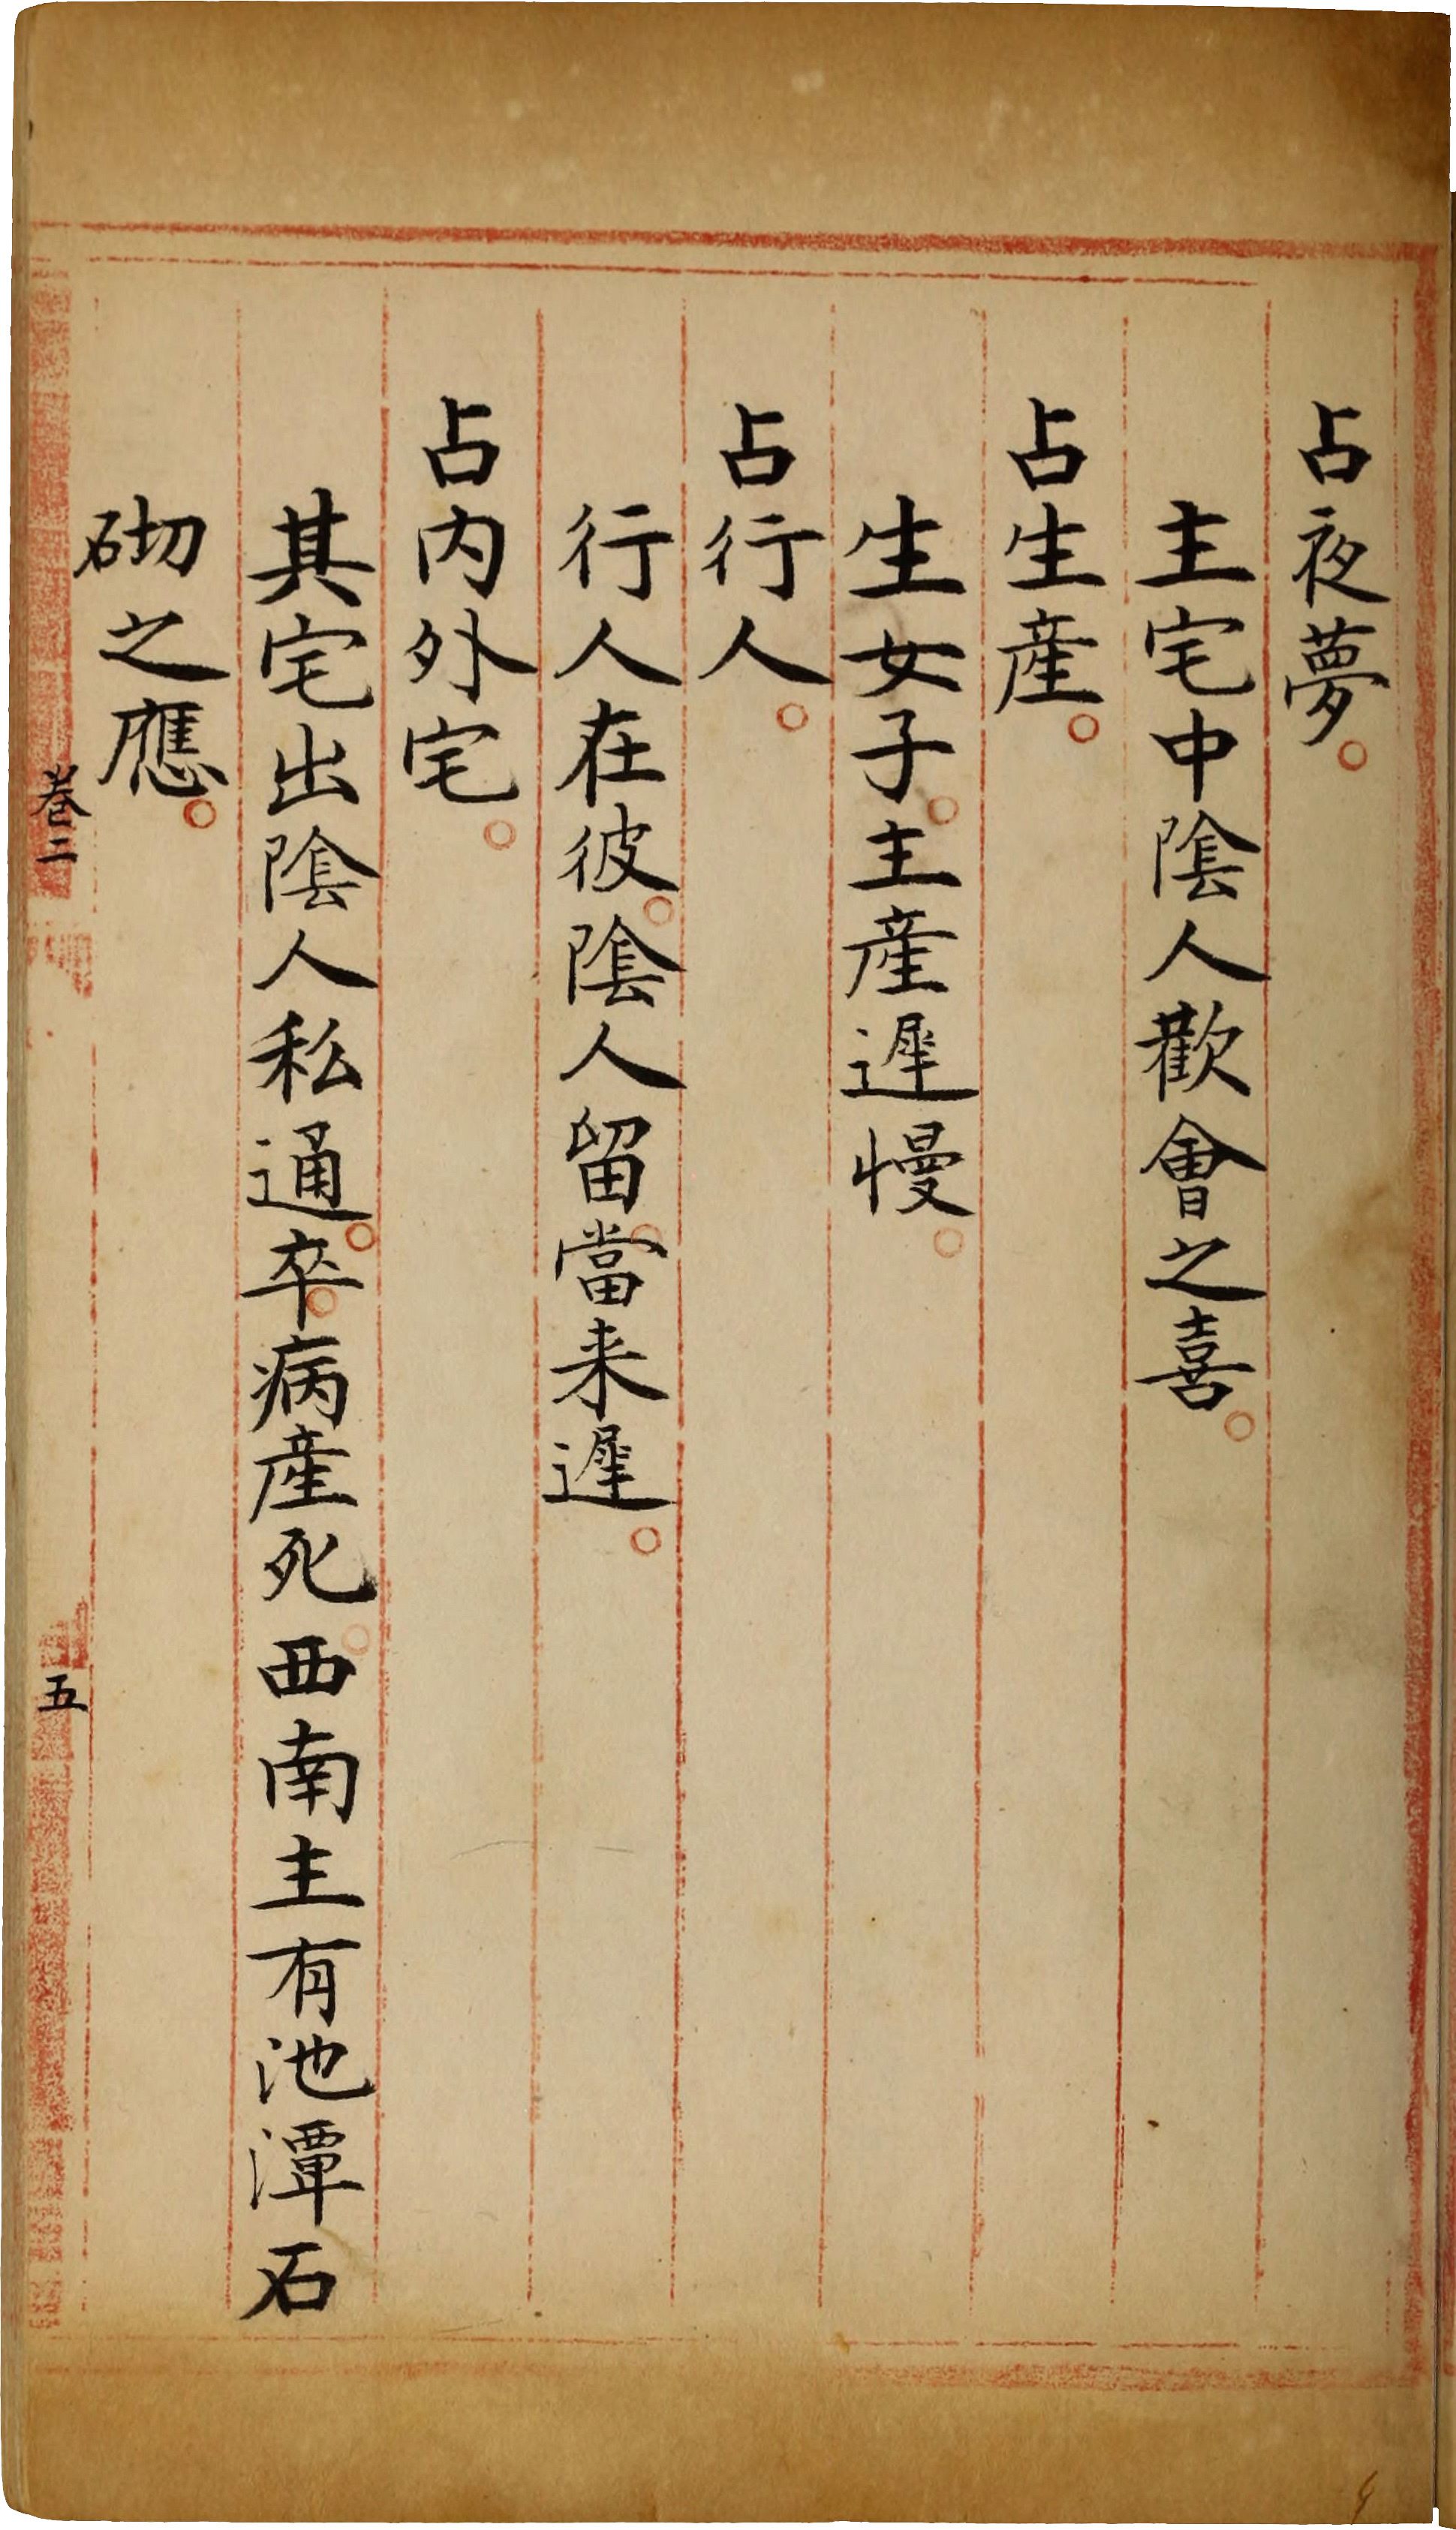 占夜夢。
主宅中陰人歡會之喜。
占生産。
生女子。主産遲慢。
占行人。
行人在彼。陰人留。當来遲。
占内外宅。
其宅出陰人私通。卒。病産死。西南主有池潭石
砌之應。
卷二
五